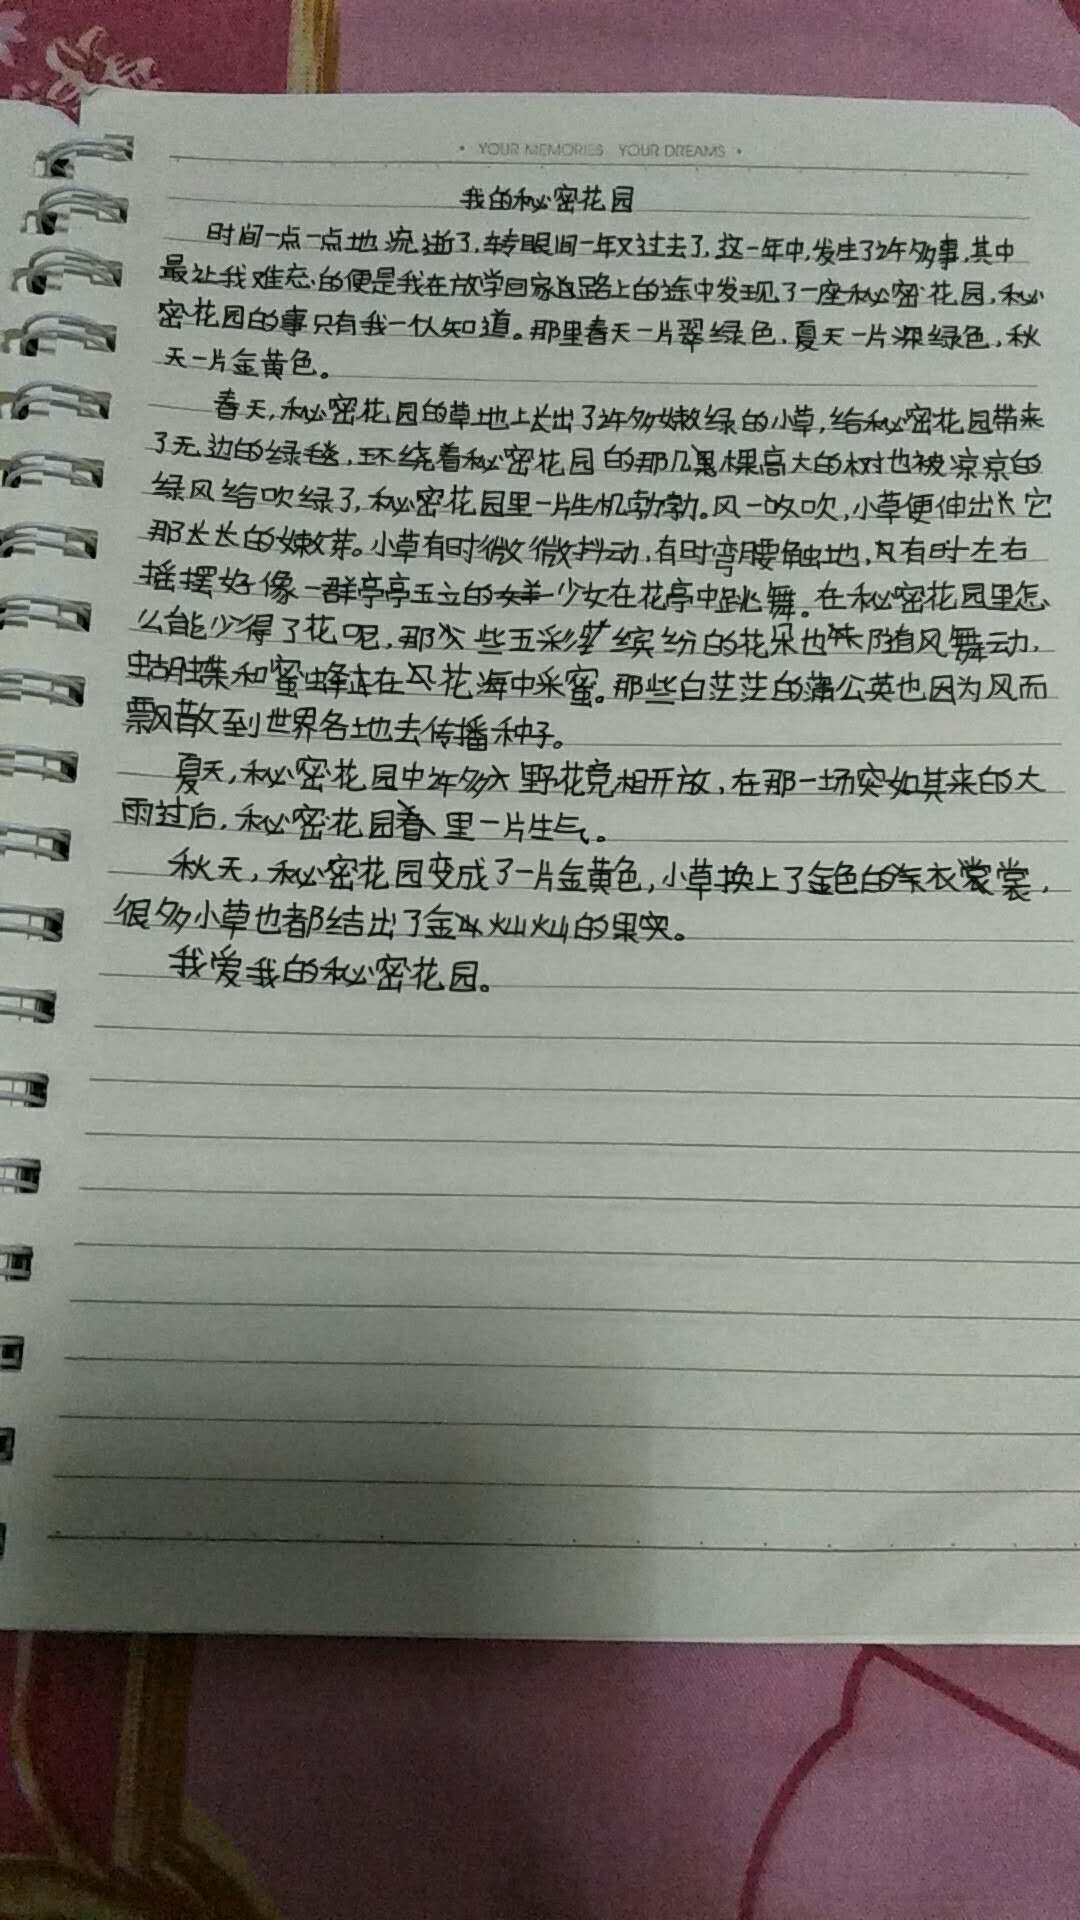 • YOUR MEMORIES YOUR DREAMS •
我的秘密花园
时间一点一点地流逝了,转眼间一年又过去了,这一年中,发生了许多事,其中
最让我难忘的便是我在放学回家路上的途中发现了一座秘密花园,秘
密花园的事只有我一个人知道。那里春天一片翠绿色,夏天一片深绿色,秋
天一片金黄色。
春天,秘密花园的草地上长出了许多嫩绿的小草,给秘密花园带来
了无边的绿毯,环绕着秘密花园的那几棵高大的树也被凉凉的
绿风给吹绿了,秘密花园里一片生机勃勃。风一吹,小草便伸出它
那长长的嫩芽。小草有时微微抖动,有时弯腰触地,有时左右
摇摆好像一群亭亭玉立的少女在花亭中跳舞。在秘密花园里怎
么能少得了花呢,那些五彩缤纷的花朵也随风舞动,
蝴蝶和蜜蜂在花海中采蜜。那些白茫茫的蒲公英也因为风而
飘散到世界各地去传播种子。
夏天,秘密花园中许多野花竞相开放,在那一场突如其来的大
雨过后,秘密花园里一片生气。
秋天,秘密花园变成了一片金黄色,小草换上了金色的衣裳,
很多小草也都结出了金灿灿的果实。
我爱我的秘密花园。